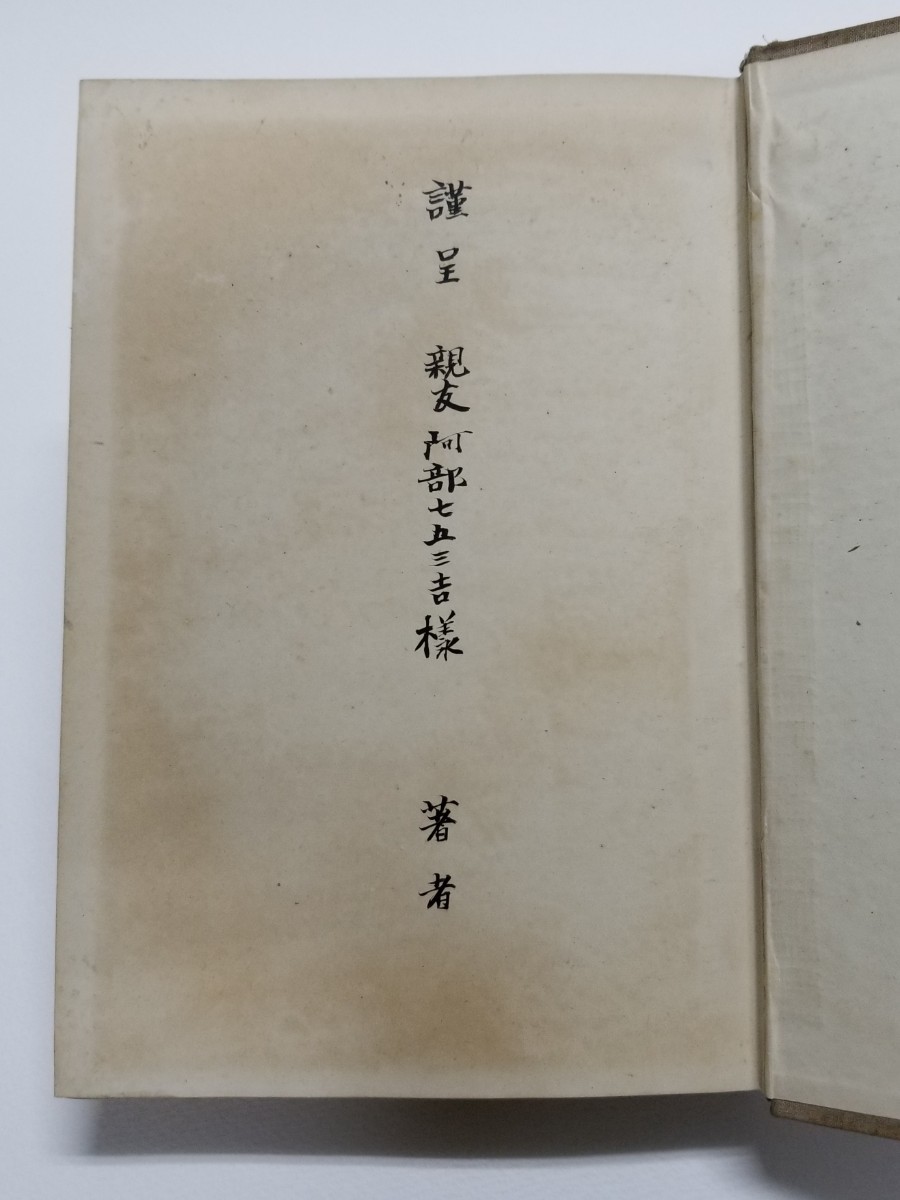 謹呈 親友阿部七五三吉様 著者